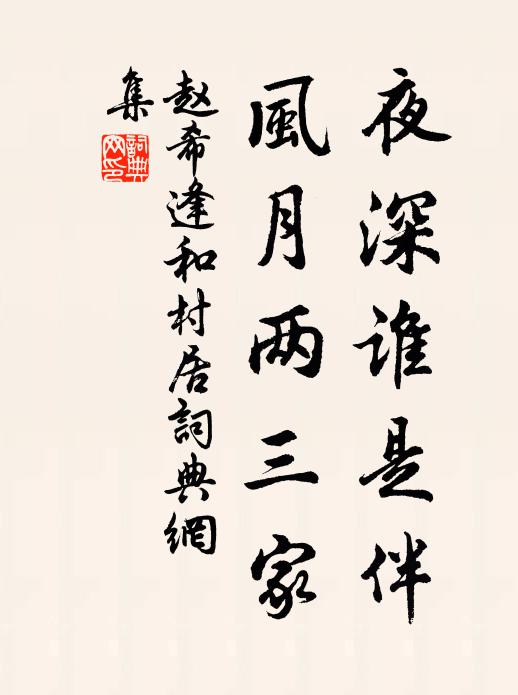 夜深谁是伴
風月两三家
赵希逢和村居詞典網
集
詞典
网印